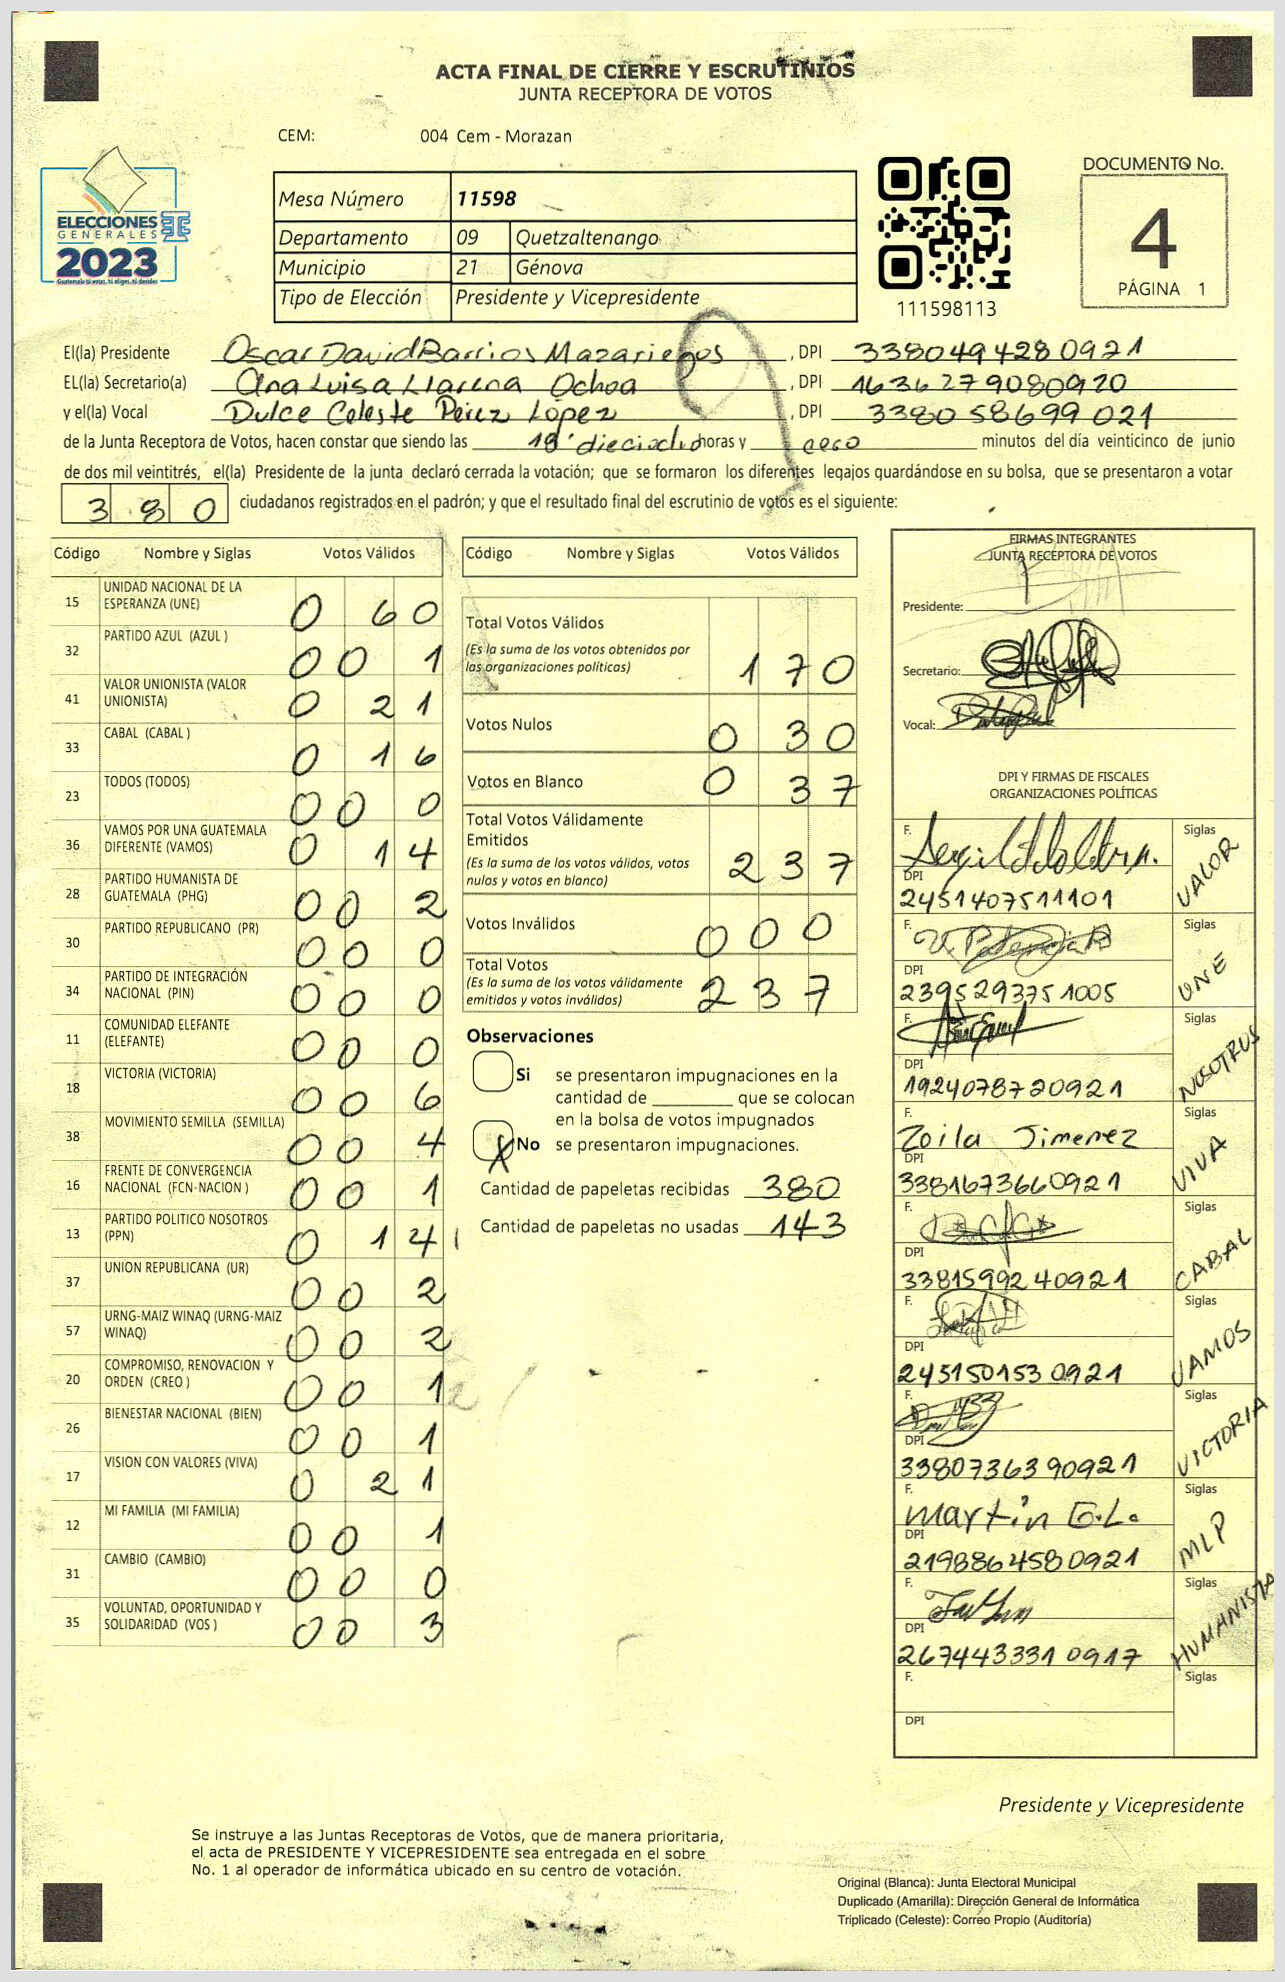 ACTA FINAL DE CIERRE Y ESCRUTINIOS
JUNTA RECEPTORA DE VOTOS
CEM: 004 Cem - Morazan
ELECCIONES
GENERALES
2023
Mesa Número 11598
Departamento 09 Quetzaltenango
Municipio 21 Génova
Tipo de Elección Presidente y Vicepresidente
111598113
DOCUMENTO No.
4
PÁGINA 1
El(la) Presidente Oscar David Barrios Mazariegos, DPI 3380494280921
EL(la) Secretario(a) Ana Luisa Llarena Ochoa, DPI 1636279080920
y el(la) Vocal Dulce Celeste Pérez López, DPI 338058699021
de la Junta Receptora de Votos, hacen constar que siendo las 18 dieciocho horas y cero minutos del día veinticinco de junio
de dos mil veintitrés, el(la) Presidente de la junta declaró cerrada la votación; que se formaron los diferentes legajos guardándose en su bolsa, que se presentaron a votar
3 8 0 ciudadanos registrados en el padrón; y que el resultado final del escrutinio de votos es el siguiente:
Código Nombre y Siglas Votos Válidos
15 UNIDAD NACIONAL DE LA ESPERANZA (UNE) 0 6 0
32 PARTIDO AZUL (AZUL ) 0 0 1
41 VALOR UNIONISTA (VALOR UNIONISTA) 0 2 1
33 CABAL (CABAL ) 0 1 6
23 TODOS (TODOS) 0 0 0
36 VAMOS POR UNA GUATEMALA DIFERENTE (VAMOS) 0 1 4
28 PARTIDO HUMANISTA DE GUATEMALA (PHG) 0 0 2
30 PARTIDO REPUBLICANO (PR) 0 0 0
34 PARTIDO DE INTEGRACIÓN NACIONAL (PIN) 0 0 0
11 COMUNIDAD ELEFANTE (ELEFANTE) 0 0 0
18 VICTORIA (VICTORIA) 0 0 6
38 MOVIMIENTO SEMILLA (SEMILLA) 0 0 4
16 FRENTE DE CONVERGENCIA NACIONAL (FCN-NACION ) 0 0 1
13 PARTIDO POLITICO NOSOTROS (PPN) 0 1 4
37 UNION REPUBLICANA (UR) 0 0 2
57 URNG-MAIZ WINAQ (URNG-MAIZ WINAQ) 0 0 2
20 COMPROMISO, RENOVACION Y ORDEN (CREO ) 0 0 1
26 BIENESTAR NACIONAL (BIEN) 0 0 1
17 VISION CON VALORES (VIVA) 0 2 1
12 MI FAMILIA (MI FAMILIA) 0 0 1
31 CAMBIO (CAMBIO) 0 0 0
35 VOLUNTAD, OPORTUNIDAD Y SOLIDARIDAD (VOS ) 0 0 3
Código Nombre y Siglas Votos Válidos
Total Votos Válidos
(Es la suma de los votos obtenidos por
las organizaciones políticas) 1 7 0
Votos Nulos 0 3 0
Votos en Blanco 0 3 7
Total Votos Válidamente
Emitidos
(Es la suma de los votos válidos, votos
nulos y votos en blanco) 2 3 7
Votos Inválidos 0 0 0
Total Votos
(Es la suma de los votos válidamente
emitidos y votos inválidos) 2 3 7
Observaciones
Si se presentaron impugnaciones en la
cantidad de ________ que se colocan
en la bolsa de votos impugnados
X No se presentaron impugnaciones.
Cantidad de papeletas recibidas 380
Cantidad de papeletas no usadas 143
FIRMAS INTEGRANTES
JUNTA RECEPTORA DE VOTOS
Presidente:
Secretario:
Vocal:
DPI Y FIRMAS DE FISCALES
ORGANIZACIONES POLÍTICAS
F. Siglas VALOR
DPI 2451407511101
F. Siglas UNE
DPI 2395293751005
F. Siglas NOSOTRUS
DPI 1924078720921
F. Zoila Jimenez Siglas VIVA
DPI 3381673660921
F. Siglas CABAL
DPI 3381599240921
F. Siglas VAMOS
DPI 2451501530921
F. Siglas VICTORIA
DPI 3380736390921
F. Martin G.L. Siglas MLP
DPI 2198864580921
F. Siglas HUMANISTA
DPI 2674433310917
F. Siglas
DPI
Presidente y Vicepresidente
Se instruye a las Juntas Receptoras de Votos, que de manera prioritaria,
el acta de PRESIDENTE Y VICEPRESIDENTE sea entregada en el sobre
No. 1 al operador de informática ubicado en su centro de votación.
Original (Blanca): Junta Electoral Municipal
Duplicado (Amarilla): Dirección General de Informática
Triplicado (Celeste): Correo Propio (Auditoría)